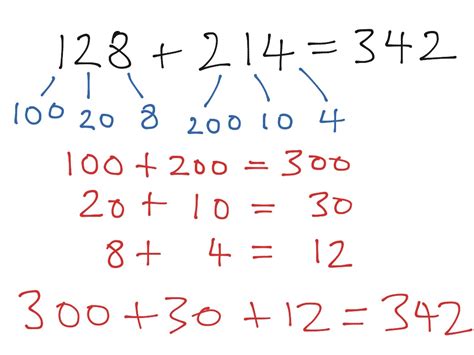 128 + 214 = 342
100 20 8 200 10 4
100 + 200 = 300
20 + 10 = 30
8 + 4 = 12
300 + 30 + 12 = 342